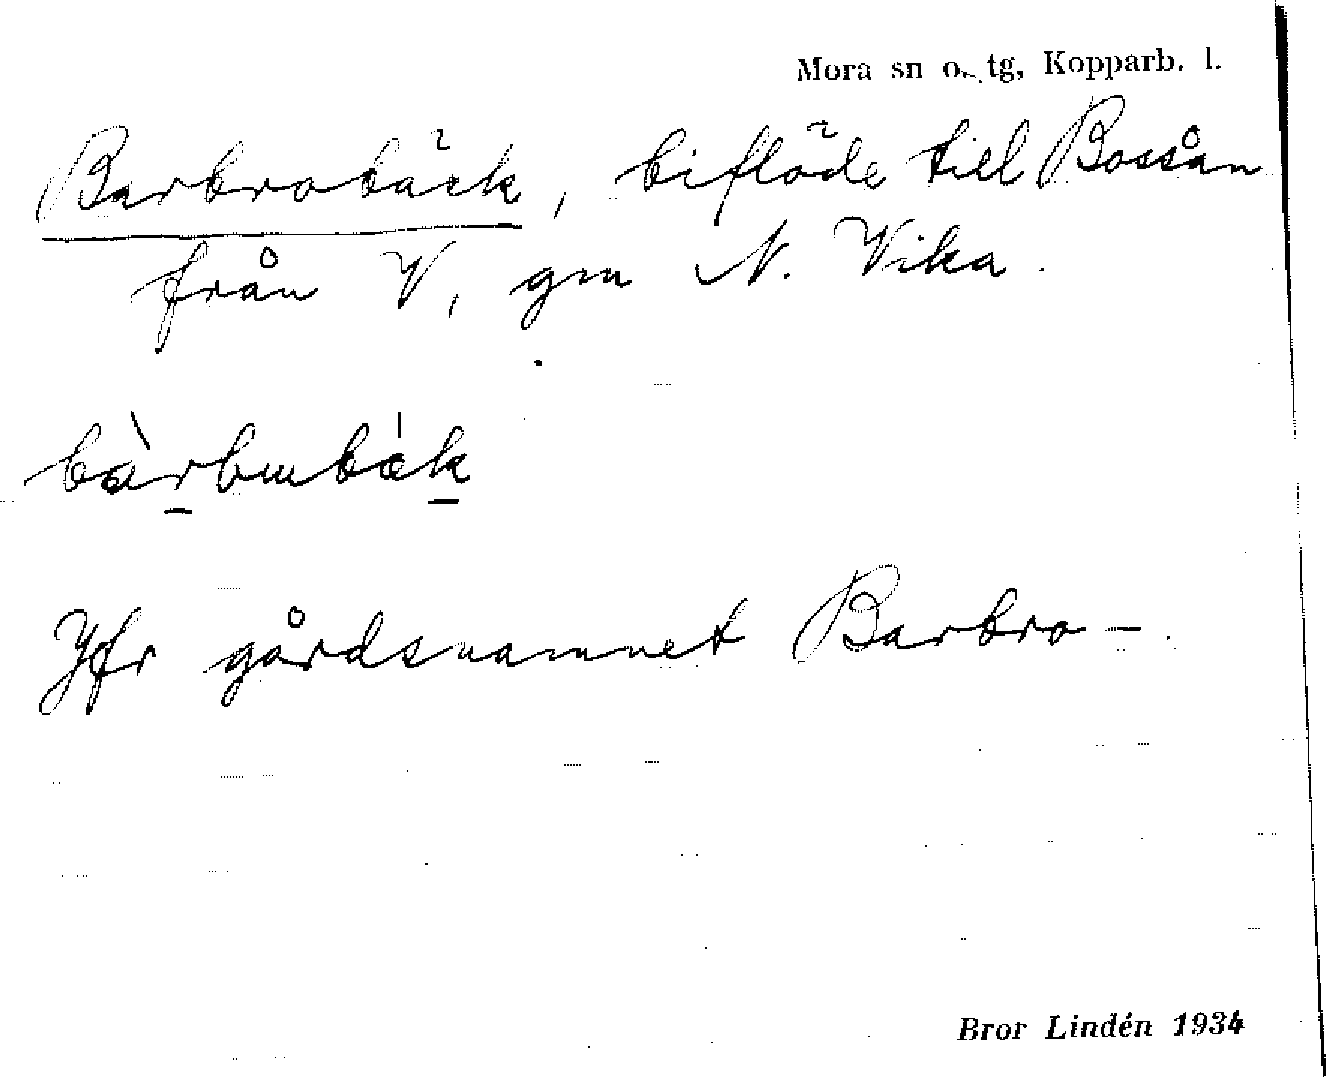 Mora sn o. tg, Kopparb. l.
Barbrobäck, biflöde till Bossån
från V, gm N. Vika.
bàrbmbák
Jfr gårdsnamnet Barbro-.
Bror Lindén 1934